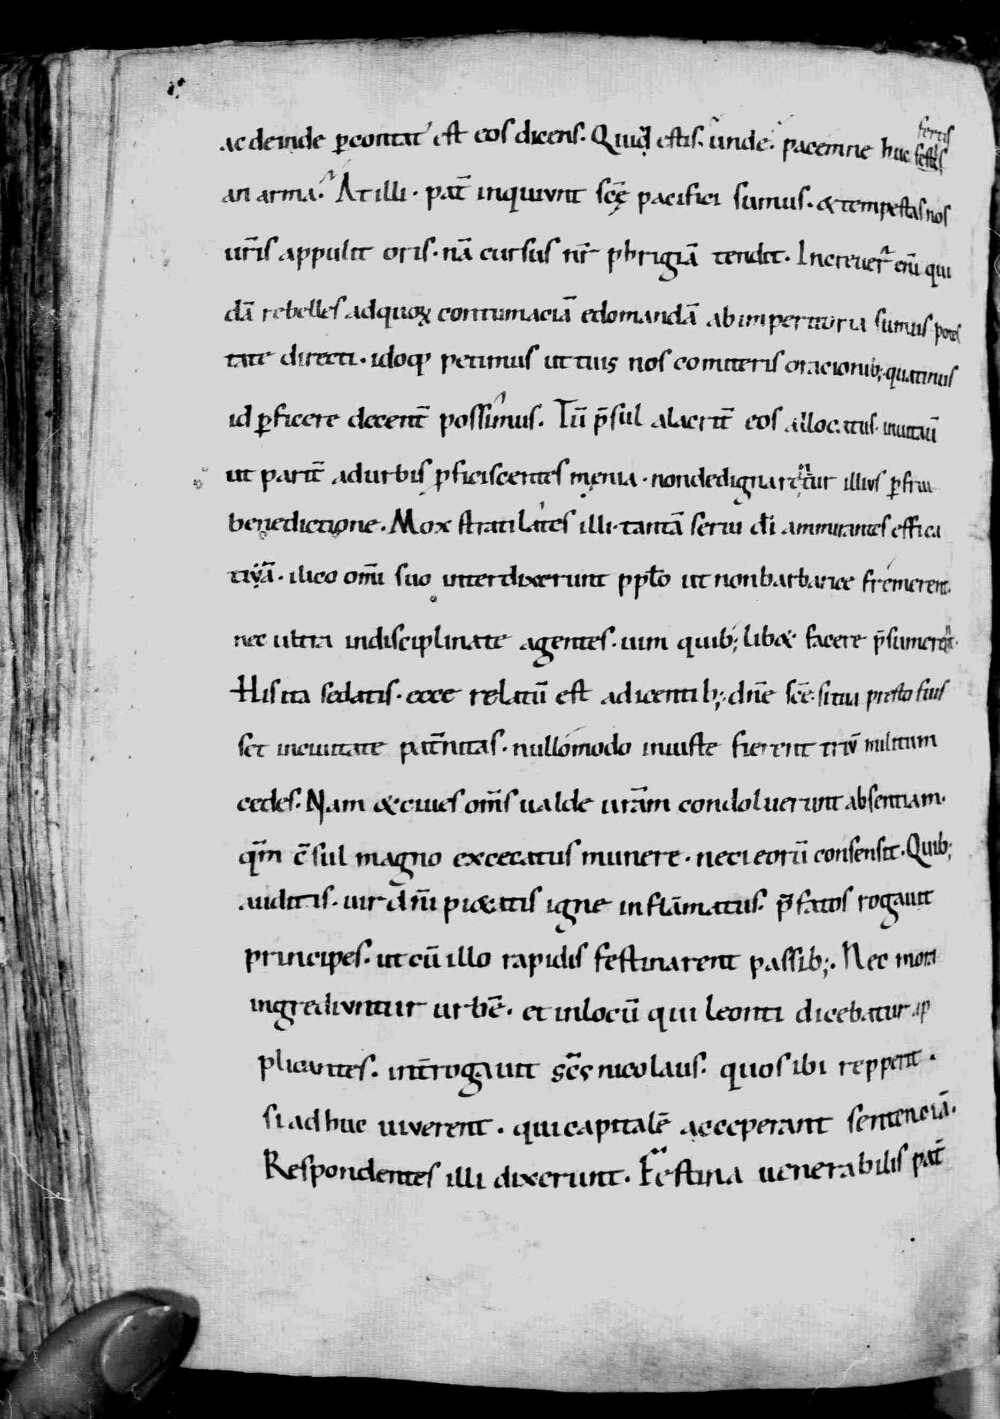 ac deinde p̲contat' est eos dicens. Quid estis. unde. pacemne huc fertis festis
an arma. At illi. pat̄ inquiunt sc̄e pacifici sumus. & tempestas nos
ur̄is appulit oris. nā cursus nr̄ phrigiā tendit. Increuer̄ eni̅ qui
dā rebelles ad quoꝝ contumaciā edomandā ab imperatoria sumus potes
tate directi. idoq; petimus ut tuis nos comitteris oracionib; quatinus
id p̲ficere decent̄ possimus. Tū p̄sul alacrit̄ eos allocutus. inuitauit
ut parit̄ ad urbis p̲ficiscentes męnia. non dedignarent̄ur illius p̲frui
benedictione. Mox stratilates illi. tantā serui dī ammirantes effica
tiā. ilico om̄i suo interdixerunt pplō ut non barbarice fremerent.
nec ultra indisciplinate agentes. uim quib; lib& facere p̄sumerent.
His ita sedatis. ecce relatū est a dicentib;. dn̄e sc̄e. si tua presto fuis
set in ciuitate pat̄nitas. nullomodo iniuste fierent triū militum
cedes. Nam & ciues om̄s ualde ur̄am condoluerunt absentiam.
qm̄ c̄sul magno excecatus munere. neci eorū consensit. Quib;
auditis. uir dn̄i pi&atis igne inflāmatus. p̄fatos rogauit
principes. ut cū illo rapidis festinarent passib;. Nec mora
ingrediuntur urbē. et in locū qui leonti dicebatur ap
plicantes. int̄rogauit sc̄s nicolaus. quos ibi repperit.
si adhuc uiuerent. qui capitalē acceperant sentenciā.
Respondentes illi dixerunt. Festina uenerabilis pat̄